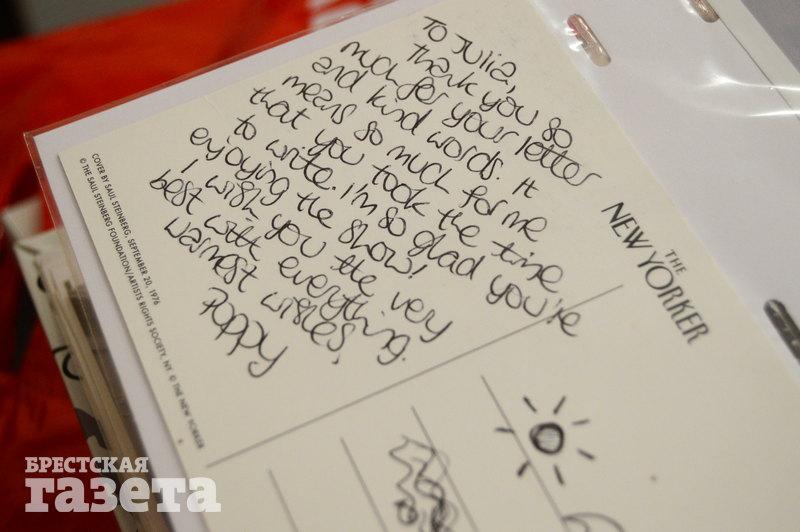 To Julia,
Thank you so
much for your letter
and kind words. It
means so much for me
that you took the time
to write. I'm so glad you're
enjoying the show!
I wish you the very
best with everything.
warmest wishes,
Poppy
THE
NEW YORKER
COVER BY SAUL STEINBERG, SEPTEMBER 20, 1976
© THE SAUL STEINBERG FOUNDATION/ARTISTS RIGHTS SOCIETY, NY. © THE NEW YORKER
БРЕСТСКАЯ
газета